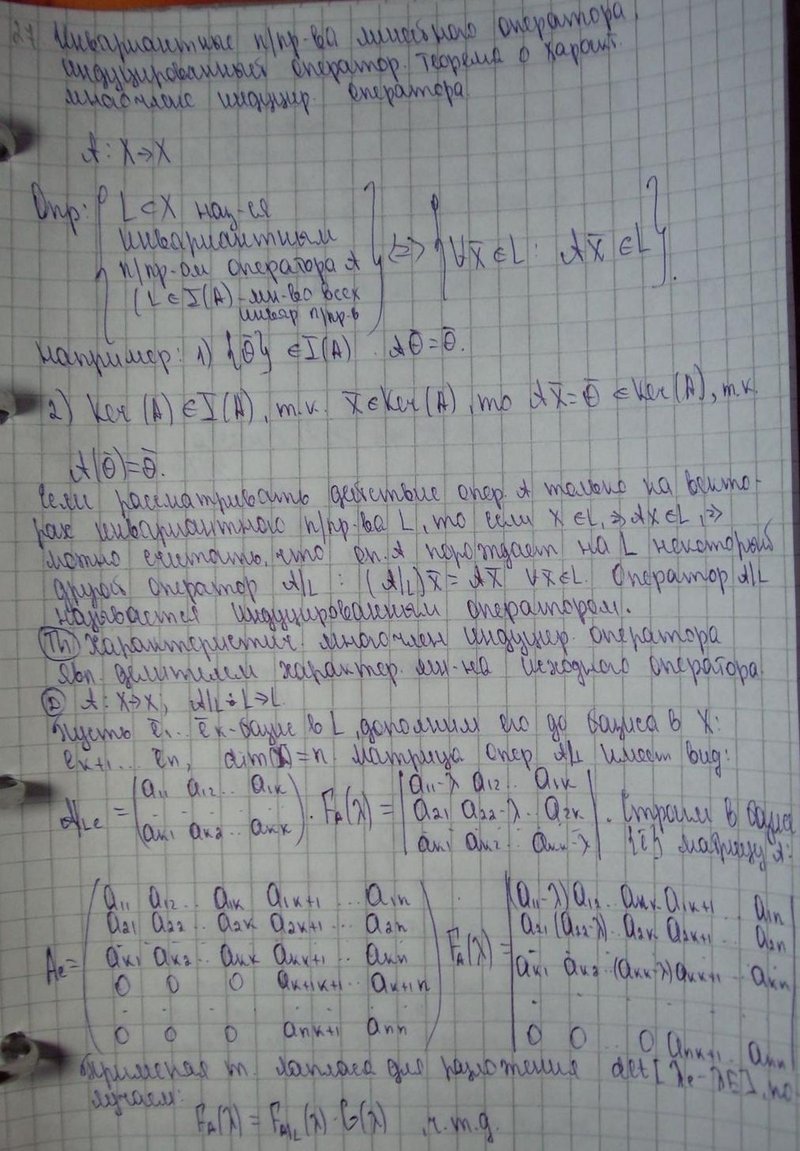 27 Инвариантные п/пр-ва линейного оператора,
индуцированный оператор. Теорема о характ.
многочлене индуцир. оператора
A: X→X
Опр: { L⊂X наз-ся инвариантным п/пр-ом оператора A (L∈I(A) - мн-во всех инвар п/пр-в } ⇔ { ∀x̄∈L: Ax̄∈L }.
Например: 1) {θ̄}∈I(A) Aθ̄=θ̄.
2) Ker(A)∈I(A), т.к. x̄∈Ker(A), то Ax̄=θ̄∈Ker(A), т.к.
A(θ̄)=θ̄.
Если рассматривать действие опер. A только на векто-
рах инвариантного п/пр-ва L, то если x∈L, ⇒ Ax∈L, ⇒
можно считать, что оп. A порождает на L некоторый
другой оператор A/L : (A/L)x̄=Ax̄ ∀x̄∈L. Оператор A/L
называется индуцированным оператором.
Th Характеристич. многочлен индуцир. оператора
явл. делителем характер. мн-на исходного оператора.
D A: X→X, A/L: L→L.
Пусть ē1.. ēk - базис в L, дополним его до базиса в X:
ek+1... en, dim(X)=n матрица опер A/L имеет вид:
A/Le = (a11 a12 .. a1k
ak1 ak2 .. akk). FA(λ) = |a11-λ a12 .. a1k
a21 a22-λ . a2k
ak1 ak2 .. akk-λ|. Строим в базисе
{ē} матрицу A:
Ae = (a11 a12 .. a1k a1k+1 .. a1n
a21 a22 .. a2k a2k+1 .. a2n
ak1 ak2 .. akk akk+1 .. akn
0 0 0 ak+1k+1 .. ak+1n
0 0 0 ank+1 ann)
FA(λ) = |(a11-λ) a12 .. akk a1k+1 .. a1n
a21 (a22-λ) .. a2k a2k+1 .. a2n
ak1 ak2 .. (akk-λ) akk+1 .. akn
0 0 .. 0 ank+1 .. ann|
Применяя т. Лапласа для разложения det[Ae-λE], по-
лучаем:
FA(λ) = FA/L(λ)·G(λ) , ч.т.д.